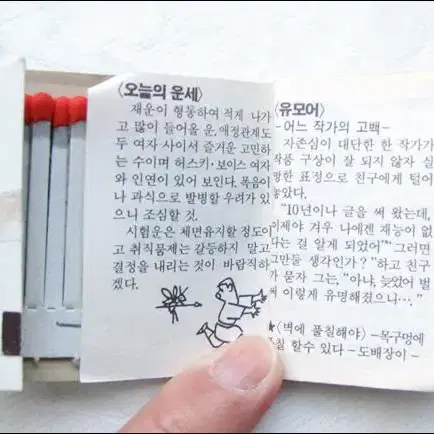 〈오늘의 운세〉
재운이 형통하여 적게 나가
고 많이 들어올 운. 애정관계도
두 여자 사이서 즐거운 고민하
는 수이며 허스키·보이스 여자
와 인연이 있어 보인다. 폭음이
나 과식으로 발병할 우려가 있
으니 조심할 것.
시험운은 체면유지할 정도이
고 취직품제는 갈등하지 말고
결정을 내리는 것이 바람직하
겠다.
〈유모어〉
-어느 작가의 고백-
자존심이 대단한 한 작가가
작품 구상이 잘 되지 않자 실
망한 표정으로 친구에게 털어
놓았다.
"10년이나 글을 써 왔는데,
이제야 겨우 나에겐 재능이 없
다는 걸 알게 되었어" "그러면
그만둘 생각인가?"하고 친구
가 묻자 그는, "아냐, 늦었어 벌
써 이렇게 유명해졌으니…."
★〈벽에 풀칠해야〉-목구멍에
칠 할수 있다 -도배장이-